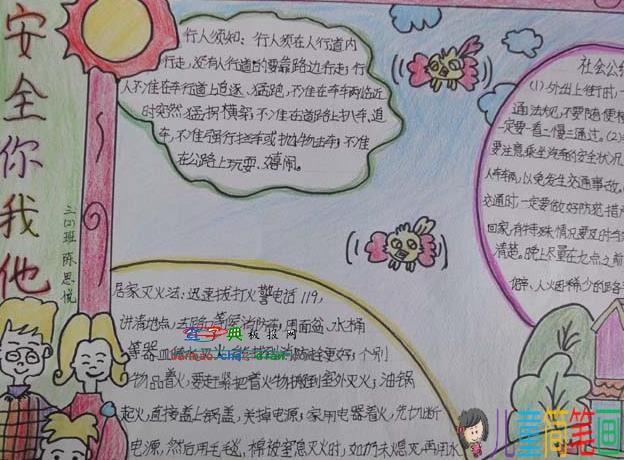 安全你我他
三(2)班 陈思悦
行人须知：行人须在人行道内
行走，没有人行道的要靠路边行走；行
人不准在车行道上追逐、猛跑，不准在车辆临近
时突然猛拐横穿，不准在道路上扒车、追
车，不准强行拦车或抛物击车；不准
在公路上玩耍、嬉闹。
社会公
(1)外出上街时，一
通法规，不要随便横
一定要一看二慢三通过。(2)
要注意乘坐汽车的安全状况
人车辆，以免发生交通事故。
交通时，一定要做好防范措
回家，有特殊情况要及时
清楚。晚上尽量在九点之前
僻、人烟稀少的路
居家灭火法：迅速拔打火警电话119，
讲清地点，去路口等候消防车；用面盆、水桶
等器皿
更好；个别
物品着火，要赶紧把着火物搬到室外灭火；油锅
起火，直接盖上锅盖，关掉电源；家用电器着火，先切断
电源，然后用毛毯、棉被窒息灭火时，如仍未熄灭再用水
查字典教投网
儿童简笔画